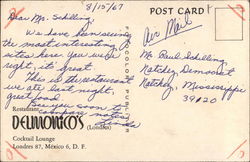 8/15/67
POST CARD
Dear Mr. Schilling,
We have been seeing
the most interesting
sites here. You were
right, it's great.
This is the restaurant
we ate last night,
great food.
See you soon to
compare notes
Restaurant
DELMONICO'S (Londres)
Cocktail Lounge
Londres 87, México 6, D. F.
FOTOCOLOR PUBLICITARIO
Air Mail
Mr. Paul Schilling
Natchez Democrat
Natchez, Mississippi
39120